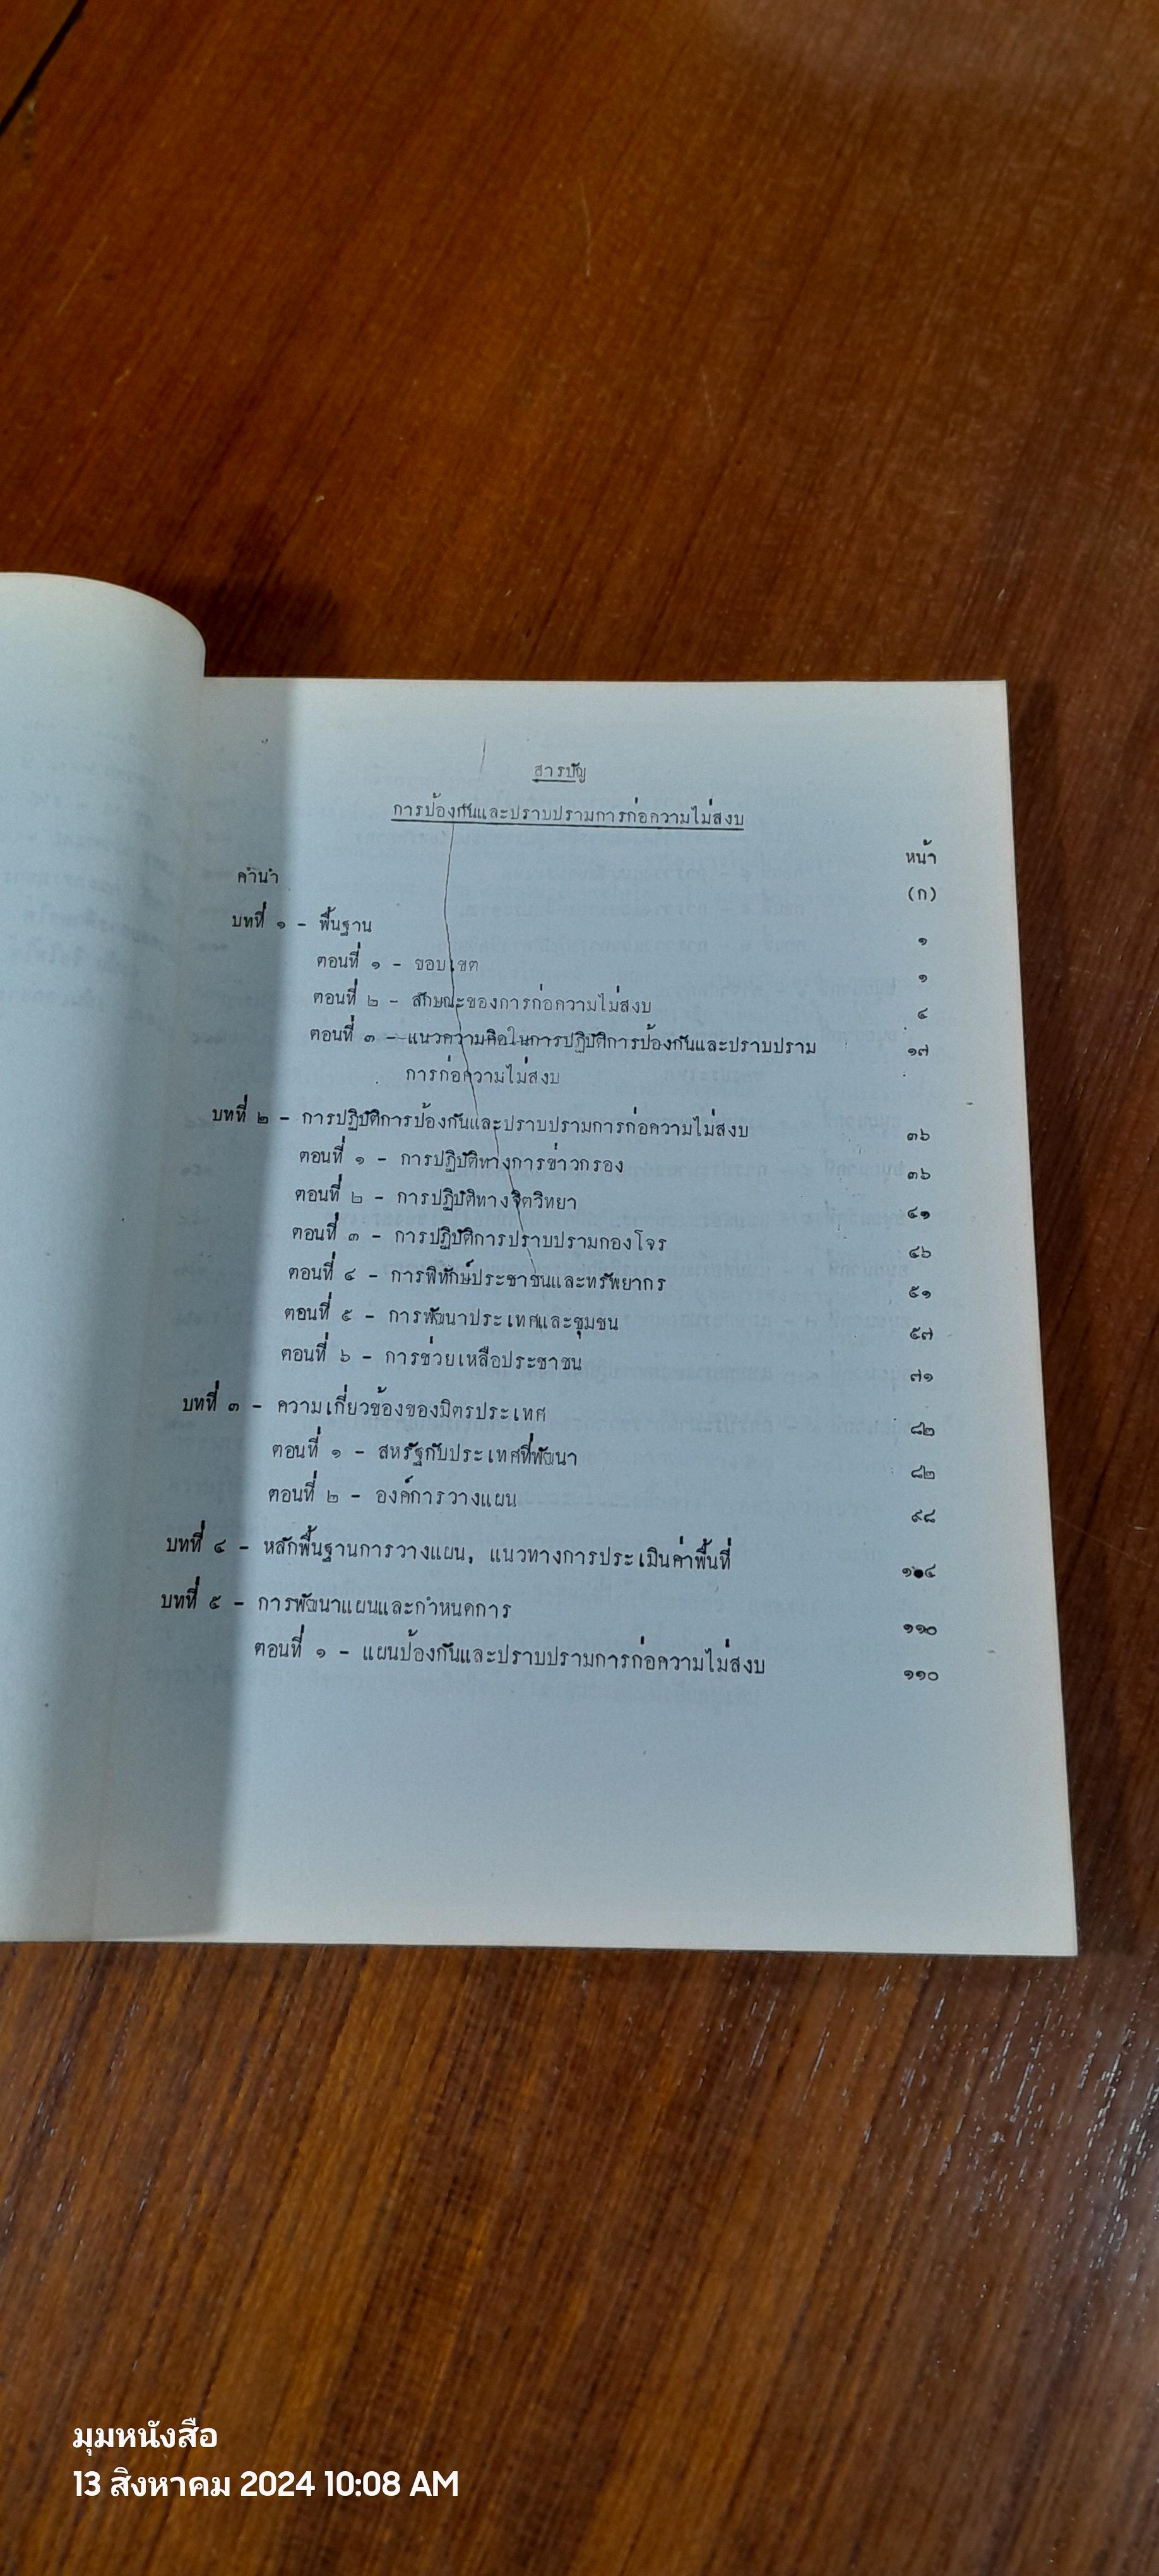 สารบัญ
การป้องกันและปราบปรามการก่อความไม่สงบ
หน้า
คำนำ (ก)
บทที่ ๑ - พื้นฐาน ๑
ตอนที่ ๑ - ขอบเขต ๑
ตอนที่ ๒ - ลักษณะของการก่อความไม่สงบ ๔
ตอนที่ ๓ - แนวความคิดในการปฏิบัติการป้องกันและปราบปราม ๑๗
การก่อความไม่สงบ
บทที่ ๒ - การปฏิบัติการป้องกันและปราบปรามการก่อความไม่สงบ ๓๖
ตอนที่ ๑ - การปฏิบัติทางการข่าวกรอง ๓๖
ตอนที่ ๒ - การปฏิบัติทางจิตวิทยา ๔๑
ตอนที่ ๓ - การปฏิบัติการปราบปรามกองโจร ๔๖
ตอนที่ ๔ - การพิทักษ์ประชาชนและทรัพยากร ๕๑
ตอนที่ ๕ - การพัฒนาประเทศและชุมชน ๕๗
ตอนที่ ๖ - การช่วยเหลือประชาชน ๗๑
บทที่ ๓ - ความเกี่ยวข้องของมิตรประเทศ ๘๒
ตอนที่ ๑ - สหรัฐกับประเทศที่พัฒนา ๘๒
ตอนที่ ๒ - องค์การวางแผน ๙๘
บทที่ ๔ - หลักพื้นฐานการวางแผน, แนวทางการประเมินค่าพื้นที่ ๑๐๔
บทที่ ๕ - การพัฒนาแผนและกำหนดการ ๑๑๐
ตอนที่ ๑ - แผนป้องกันและปราบปรามการก่อความไม่สงบ ๑๑๐
มุมหนังสือ
13 สิงหาคม 2024 10:08 AM